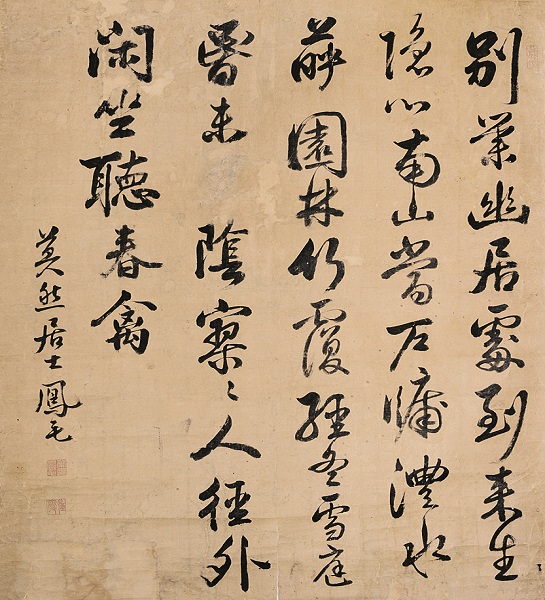 別業幽居處到來生
隱心南山當戶牖灃水
園林竹覆經冬雪庭
昏未陰寥〻人徑外
閑坐聽春禽
莫然居士鳳毛